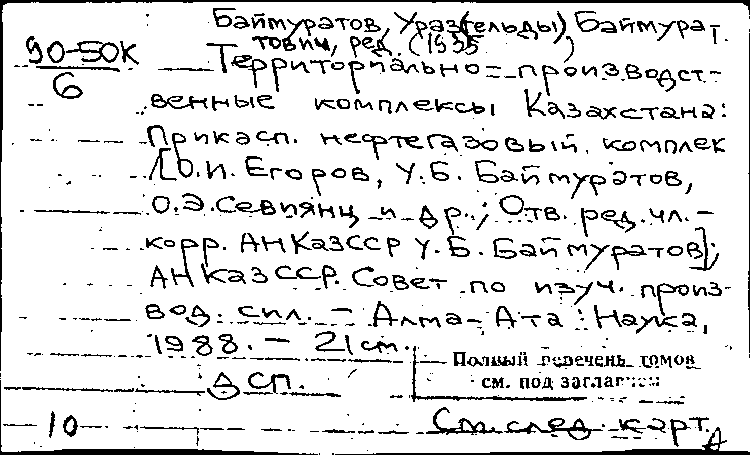 Баймуратов, Ураз(гельды) Баймурат
тович, ред. (1935 )
90-50К
6
Территориально-производст-
венные комплексы Казахстана:
Прикасп. нефтегазовый комплек
/[О.И. Егоров, У.Б. Баймуратов,
О.Э. Севиянц и др.; Отв. ред. чл.-
корр. АН КазССР У.Б. Баймуратов];
АН КазССР. Совет по изуч. произ-
вод. сил. – Алма-Ата: Наука,
1988. – 21 см.
Полный перечень томов
см. под заглавием
ДСП.
10
См. след. карт.
А